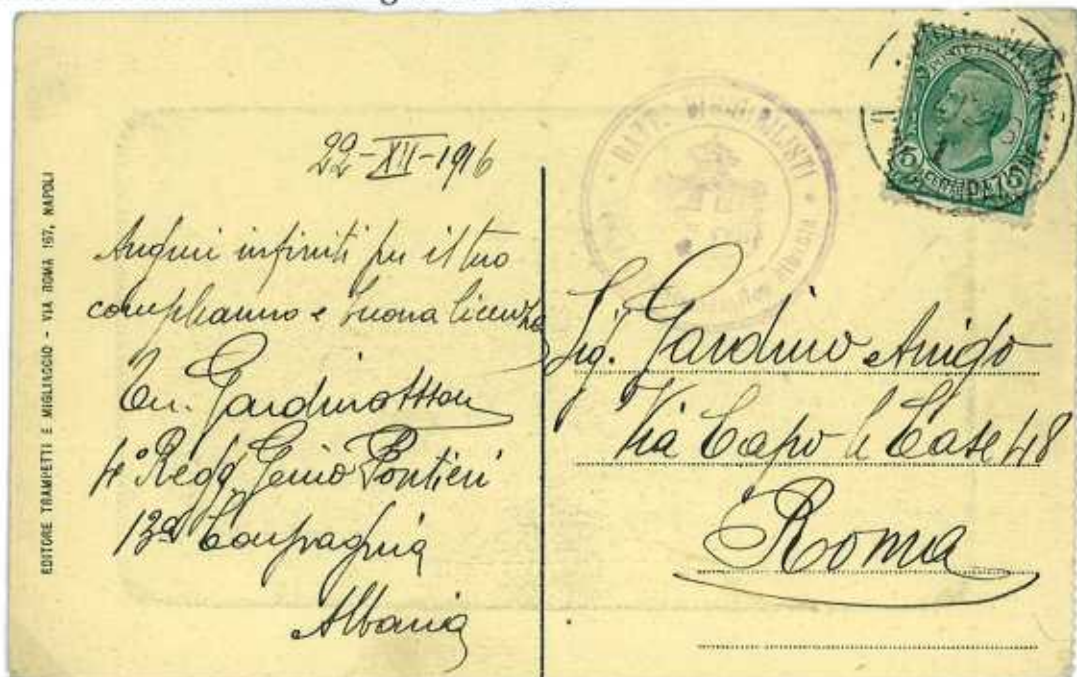 EDITORE TRAMPETTI E MIGLIACCIO - VIA ROMA 167, NAPOLI
22-XII-1916
Auguri infiniti per il tuo
compleanno e buona licenza
Ten. Gardino
4° Regg. Genio Pontieri
13ª Compagnia
Albania
BATT.
Sig. Gardino Arrigo
Via Capo le Case 48
Roma
5